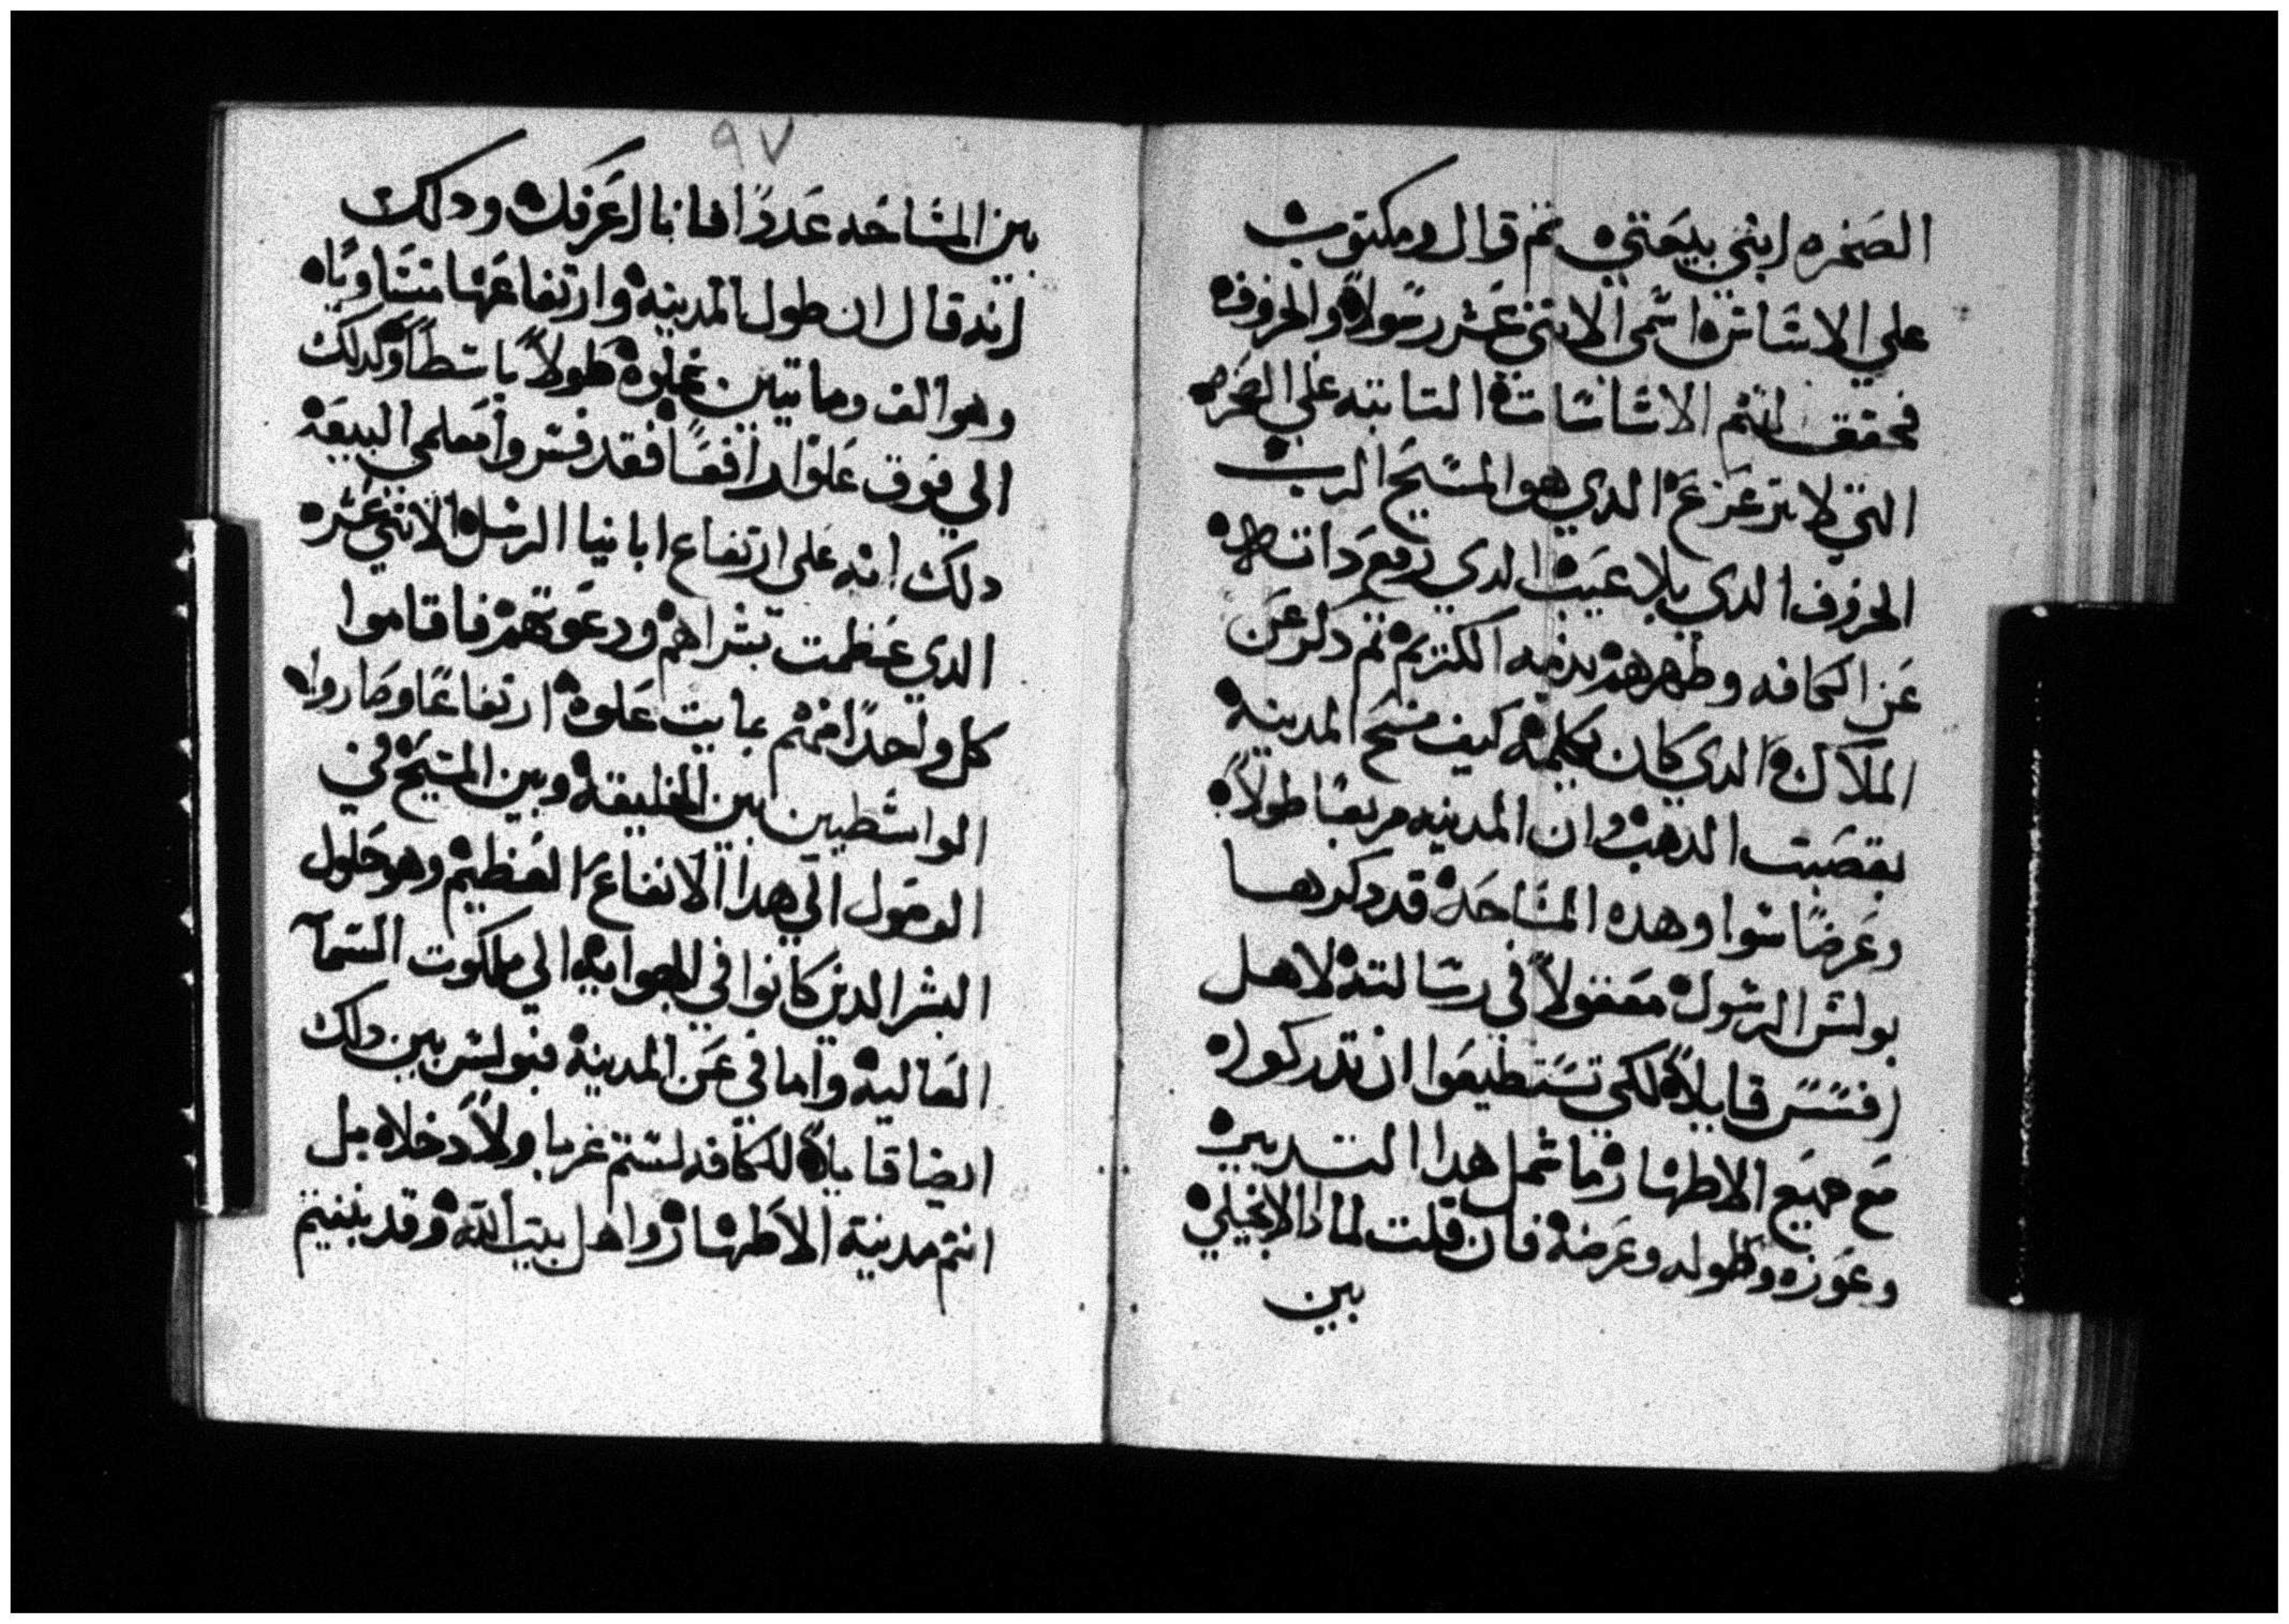 الصخره ابني بيعتي ثم قال ومكتوب
علي الاساس اسمي الاتني عشر رسولا والخروف
فحقق لنم الاساسات التابته علي الصخره
التي لا تتزعزع الدي هو المسيح الرب
الخروف الدي بلا عيب الدي رفع داته
عن الكافه وطهرهم بدمه الكريم تم دكر عن
الملاك الدي كان يكلمه كيف مسح المدينه
بقصبت الدهب وان المدينه مربعا طولا
وعرضا سوا وهده المساحه قد دكرها
بولس الرسول معقولا في رسالته لاهل
افسس قايلا لكي تستطيعوا ان تدركوا
مع جميع الاطهار ما شمل هدا التدبير
وعوزه وطوله وعرضه فان قلت لمادا الانجيلي
بين
٩٧
بين المساحه عددا فانا اعرفك ودلك
انه قال ان طول المدينه وارتفاعها متساويا
وهو الف وماتين غلوه طولا باسطا وكدلك
الي فوق علوا رافعا فقد فسروا معلمي البيعه
دلك انه على ارتفاع ابانيا الرسل الاتني عشر
الدي عظمت بشراهم ودعوتهم فاقاموا
كل واحدا منهم بمايت غلوه ارتفاعا وصاروا
الواسطين بين الخليقه وبين المسيح في
الوصول الي هدا الارتفاع العظيم وهو حلول
البشر الدين كانوا في الهوايه الي ملكوت السما
العاليه واما في عن المدينه فبولس بين دلك
ايضا قايلا للكافه لستم غربا ولا دخلا بل
انتم مدينة الاطهار واهل بيت الله وقد بنيتم